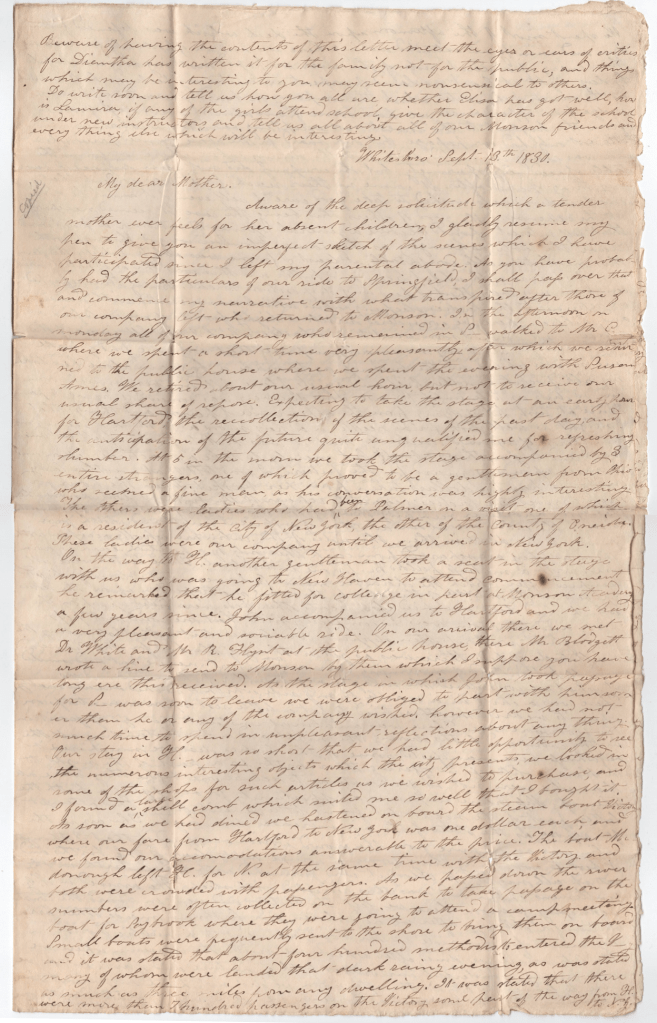 Beware of having the contents of this letter meet the eyes or ears of critics
for Diantha has written it for the family not for the public, and things
which may be interesting to you may seem nonsensical to others.
Do write soon and tell us how you all are whether Eliza has got well, how
is Lamira, if any of the girls attend school, give the character of the school
under new instructors and tell us all about all of our Monson friends and
every thing else which will be interesting.
Whitesboro Sept. 13th 1830.
Copied
My dear Mother.
Aware of the deep solicitude which a tender
mother ever feels for her absent children, I gladly resume my
pen to give you an imperfect sketch of the scenes which I have
participated since I left my parental abode. As you have probab-
ly had the particulars of our ride to Springfield, I shall pass over that
and commence my narrative with what transpired after those of
our company left who returned to Monson. In the afternoon
monday all of our company who remained in S. walked to Mr C.
where we spent a short time very pleasantly after which we
to the public house where we spent the evening with
Ames. We retired about our usual hour but not to receive our
usual share of repose. Expecting to take the stage at an early hour
for Hartford the recollection of the scenes of the past day and
the anticipation of the future quite unqualified me for refreshing
slumber. At 5 in the morn we took the stage accompanied by 3
entire strangers, one of which proved to be a gentleman from Ohio
who seemed a fine man, as his conversation was highly interesting
The others were ladies who had been to Palmer on a visit one of which
is a resident of the City of New York, the other of the County of Oneida.
These ladies were our company until we arrived in New York.
On the way to H. another gentleman took a seat in the stage
with us who was going to New Haven to attend commencement
he remarked that he fitted for college in part at Monson Academy
a few years since. John accompanied us to Hartford and we had
a very pleasant and sociable ride. On our arrival there we met
Dr White and Mr R. Flynt at the public house, there Mr Blodgett
wrote a line to send to Monson by them which I suppose you have
long ere this received. As the stage in which John took passage
for S. was soon to leave we were obliged to part with him soon-
er than he or any of the company wished, however we had not
much time to spend in unpleasant reflections about any thing
Our stay in H. was so short that we had little opportunity to see
the numerous interesting objects which the city presents, we looked in
some of the shops for such articles as we wished to purchase, and
I found a shell comb which suited me so well that I bought it.
As soon as we had dined we hastened on board the steam boat Victory
where our fare from Hartford to New York was one dollar each and
we found our accomodations answerable to the price. The boat M.
donough left H. for N. at the same time with the Victory and
both were crowded with passengers. As we passed down the river
numbers were often collected on the bank to take passage on the
boat for Sybrook where they were going to attend a campmeeting
Small boats were frequently sent to the shore to bring them on board
and it was stated that about four hundred methodists entered the V.
many of whom were landed that dark rainy evening as was stated
as much as three miles from any dwelling. It was stated that there
were more than 7 hundred passengers on the Victory some part of the way from H.
to N.Y.